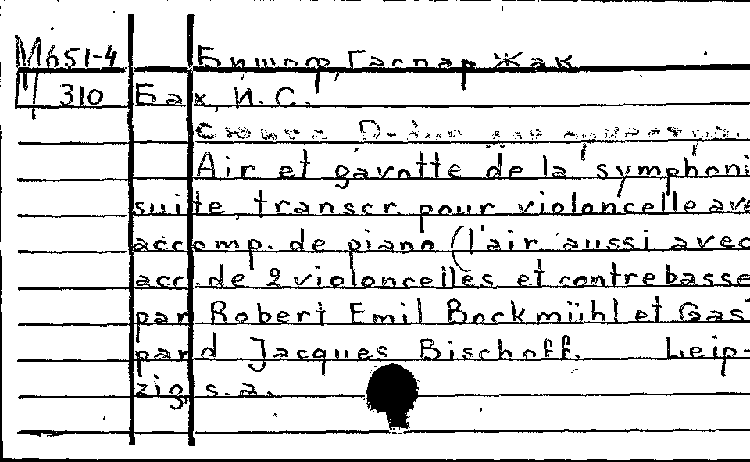 М651-4 Бишоф, Гаспар Жак
310 Бах, И.С.
Сюита D-dur для оркестра.
Air et gavotte de la symphoni
suite, transcr. pour violoncelle ave
accomp. de piano (l'air aussi avec
acc. de 2 violoncelles et contrebasse
par Robert Emil Bockmühl et Gas
pard Jacques Bischoff. Leip-
zig, s.a.